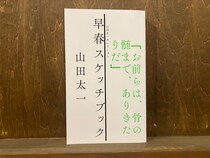 『お前らは、骨の
髄まで、ありきた
りだ』
早春スケッチブック
山田太一